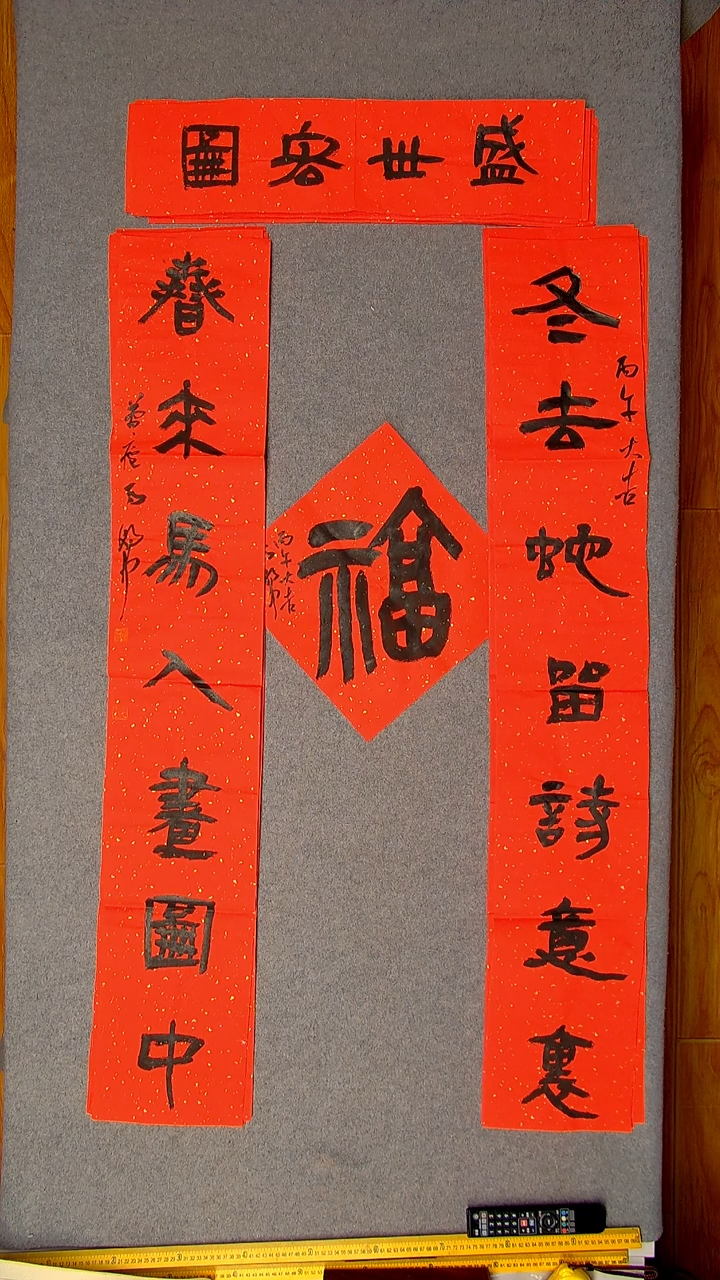 盛世宏圖
冬去蛇留詩意裏
丙午大吉
春來馬入畫圖中
福
丙午大吉